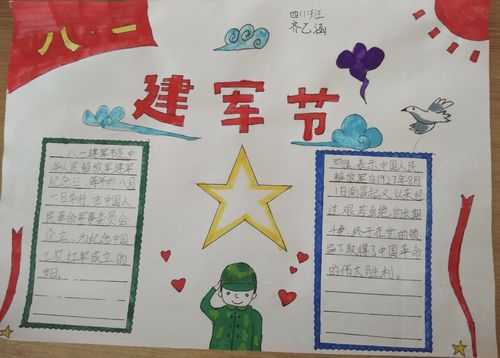 八·一
四(1)班
齐乙涵
建军节
八一建军节是中
国人民解放军建军
纪念日，每年的八月
一日举行，由中国人
民革命军事委员会
设立，为纪念中国
工农红军成立的
节日。
表示中国人民
解放军自1927年8月
1日南昌起义以来经
过艰苦卓绝的长期
斗争 终于在
取得了中国革命
的伟大胜利。